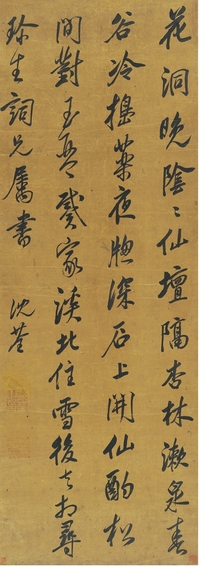 花洞晚陰〻仙壇隔杏林漱泉春
谷冷搗藥夜牕深石上開仙酌松
間對玉琴戴家溪北住雪後去相尋
珎生詞兄屬書 沈荃